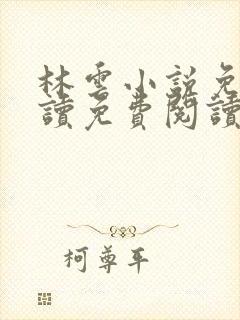 林雲小説免
讀免費閱讀
柯尊平